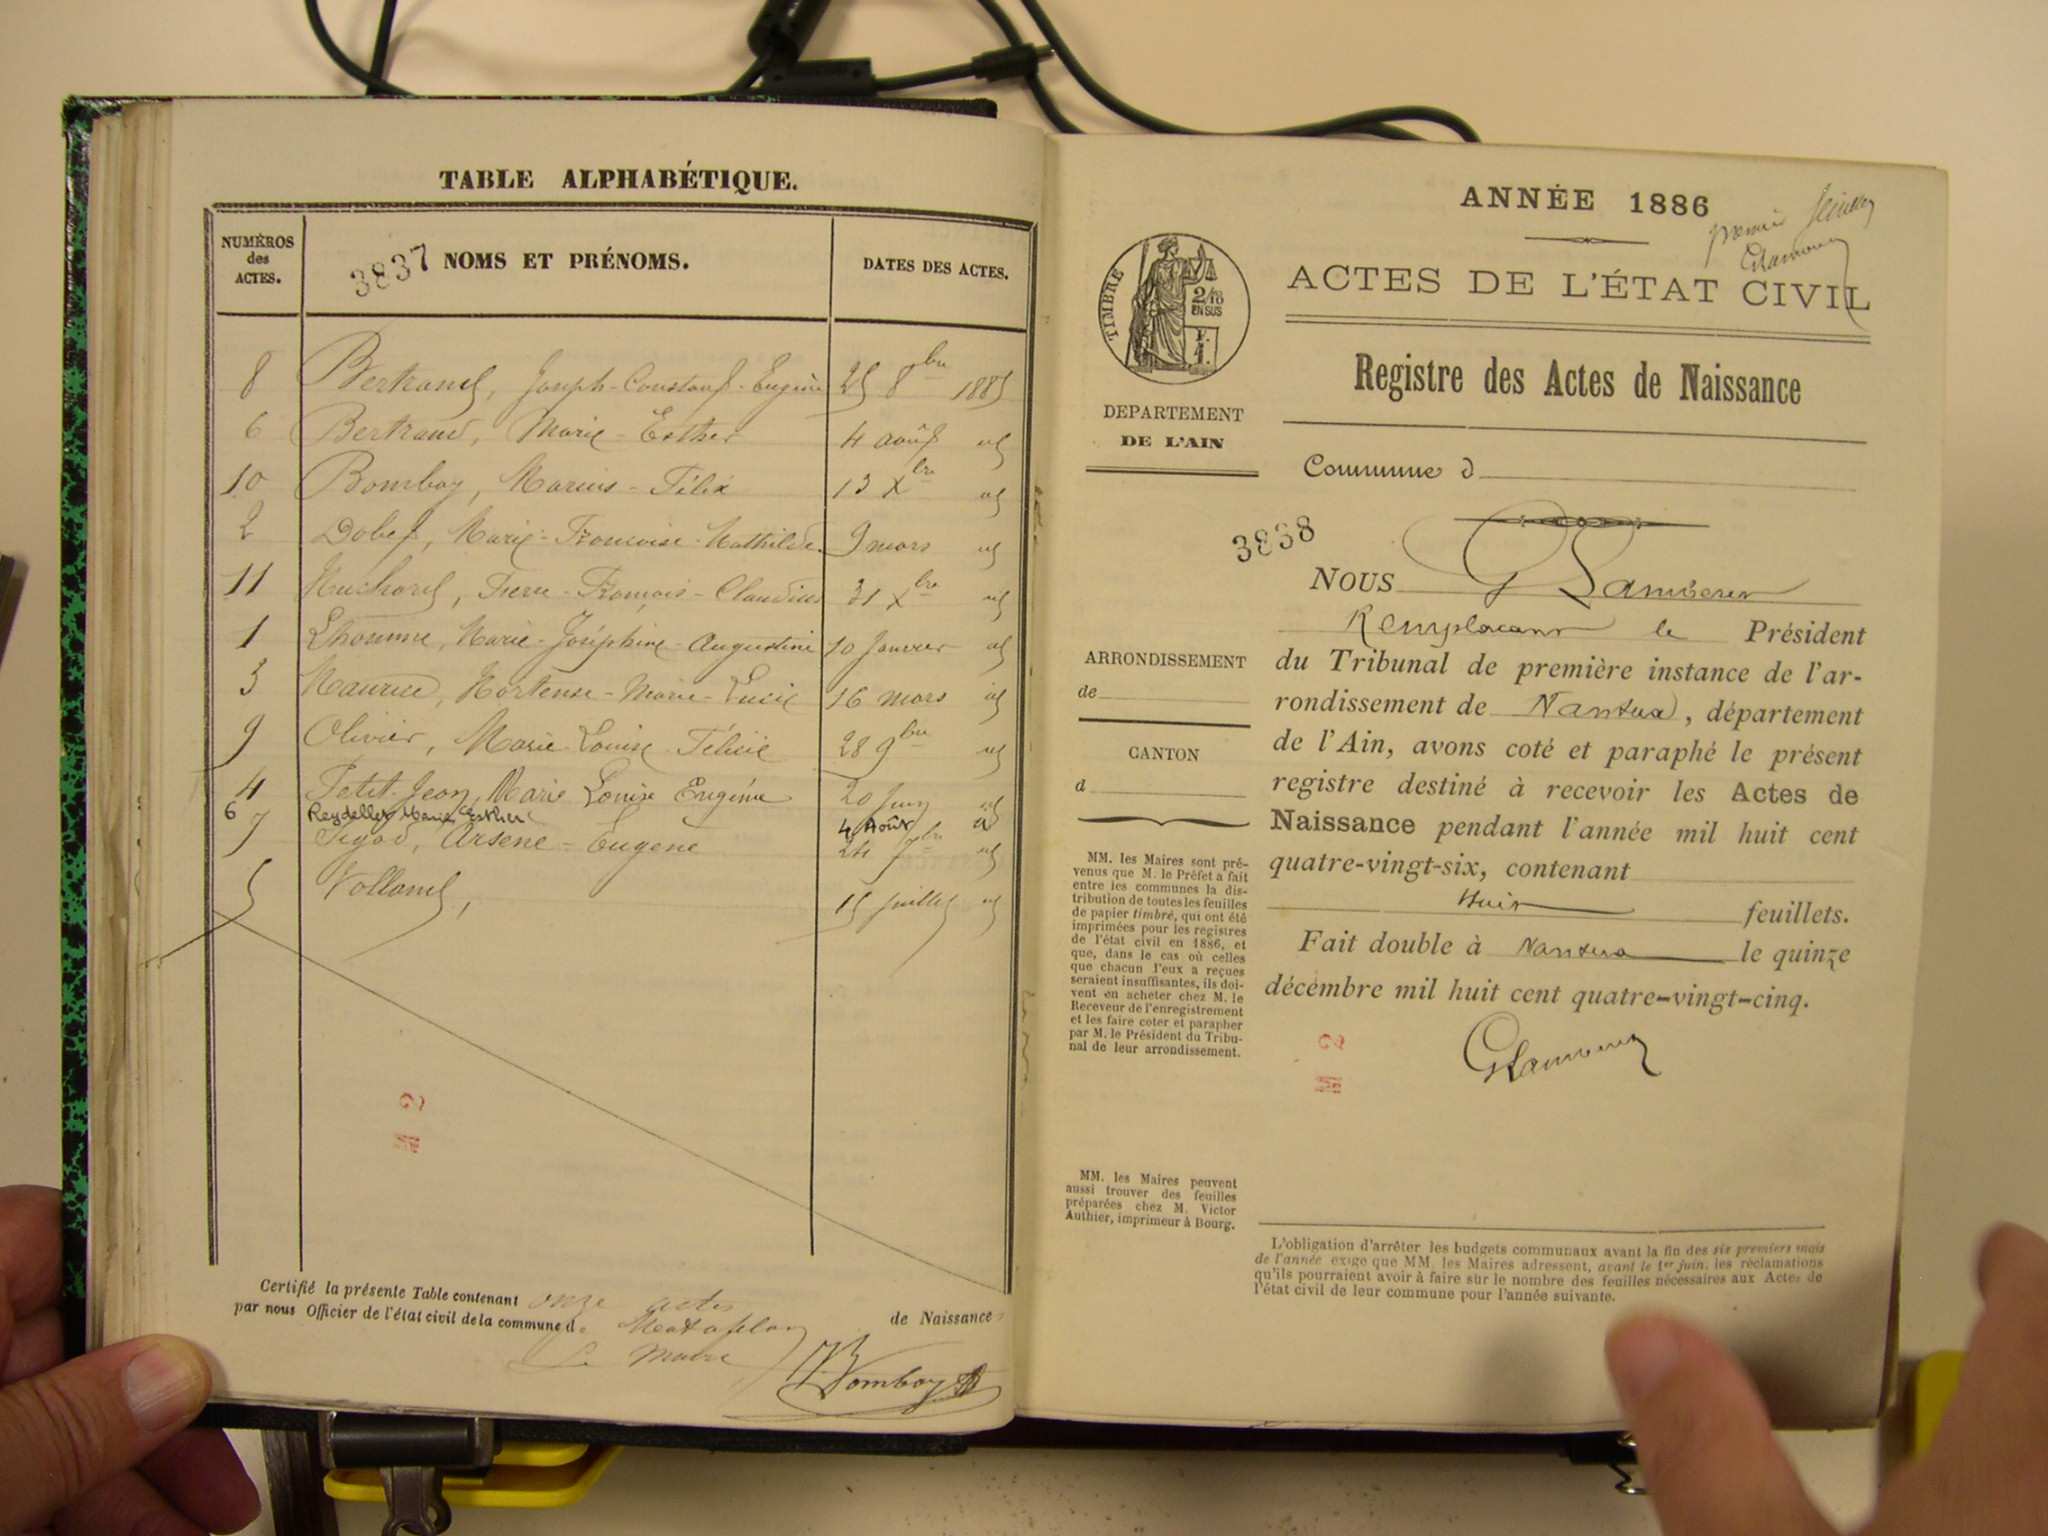 TABLE ALPHABÉTIQUE.
NUMÉROS
des
ACTES.
3837 NOMS ET PRÉNOMS.
DATES DES ACTES.
8 Bertrand, Joseph-Constant-Eugène 25 8bre 1885
6 Bertrand, Marie-Esther 4 août id
10 Bomboy, Marius-Félix 13 Xbre id
2 Dobet, Marie-Françoise-Mathilde 9 mars id
11 Huchard, Pierre-François-Claudius 31 Xbre id
1 Lhomme, Marie-Joséphine-Augustine 10 Janvier id
3 Maurice, Hortense-Marie-Lucie 16 mars id
9 Olivier, Marie-Louise-Félicie 28 9bre id
4 Petit-Jean, Marie Louise Eugénie 20 Juin id
6 Reydellet Marie Esther 4 Août id
7 Tigod, Arsène-Eugène 24 7bre id
5 Volland, 15 juillet id
Certifié la présente Table contenant onze actes de Naissance
par nous Officier de l'état civil de la commune de Matafelon
Le Maire
Bomboy
ANNÉE 1886
premier feuillet
ACTES DE L'ÉTAT CIVIL
TIMBRE
2/10
EN SUS
Registre des Actes de Naissance
DEPARTEMENT
DE L'AIN
Commune d
3838
NOUS
Remplaçant le Président
du Tribunal de première instance de l'ar-
rondissement de Nantua, département
de l'Ain, avons coté et paraphé le présent
registre destiné à recevoir les Actes de
Naissance pendant l'année mil huit cent
quatre-vingt-six, contenant
Huit feuillets.
Fait double à Nantua le quinze
décembre mil huit cent quatre-vingt-cinq.
ARRONDISSEMENT
de
CANTON
d
MM. les Maires sont pré-
venus que M. le Préfet a fait
entre les communes la dis-
tribution de toutes les feuilles
de papier timbré, qui ont été
imprimées pour les registres
de l'état civil en 1886, et
que, dans le cas où celles
que chacun d'eux a reçues
seraient insuffisantes, ils doi-
vent en acheter chez M. le
Receveur de l'enregistrement
et les faire coter et parapher
par M. le Président du Tribu-
nal de leur arrondissement.
MM. les Maires peuvent
aussi trouver des feuilles
préparées chez M. Victor
Authier, imprimeur à Bourg.
L'obligation d'arrêter les budgets communaux avant la fin des six premiers mois
de l'année exige que MM. les Maires adressent, avant le 1er juin, les réclamations
qu'ils pourraient avoir à faire sur le nombre des feuilles nécessaires aux Actes de
l'état civil de leur commune pour l'année suivante.